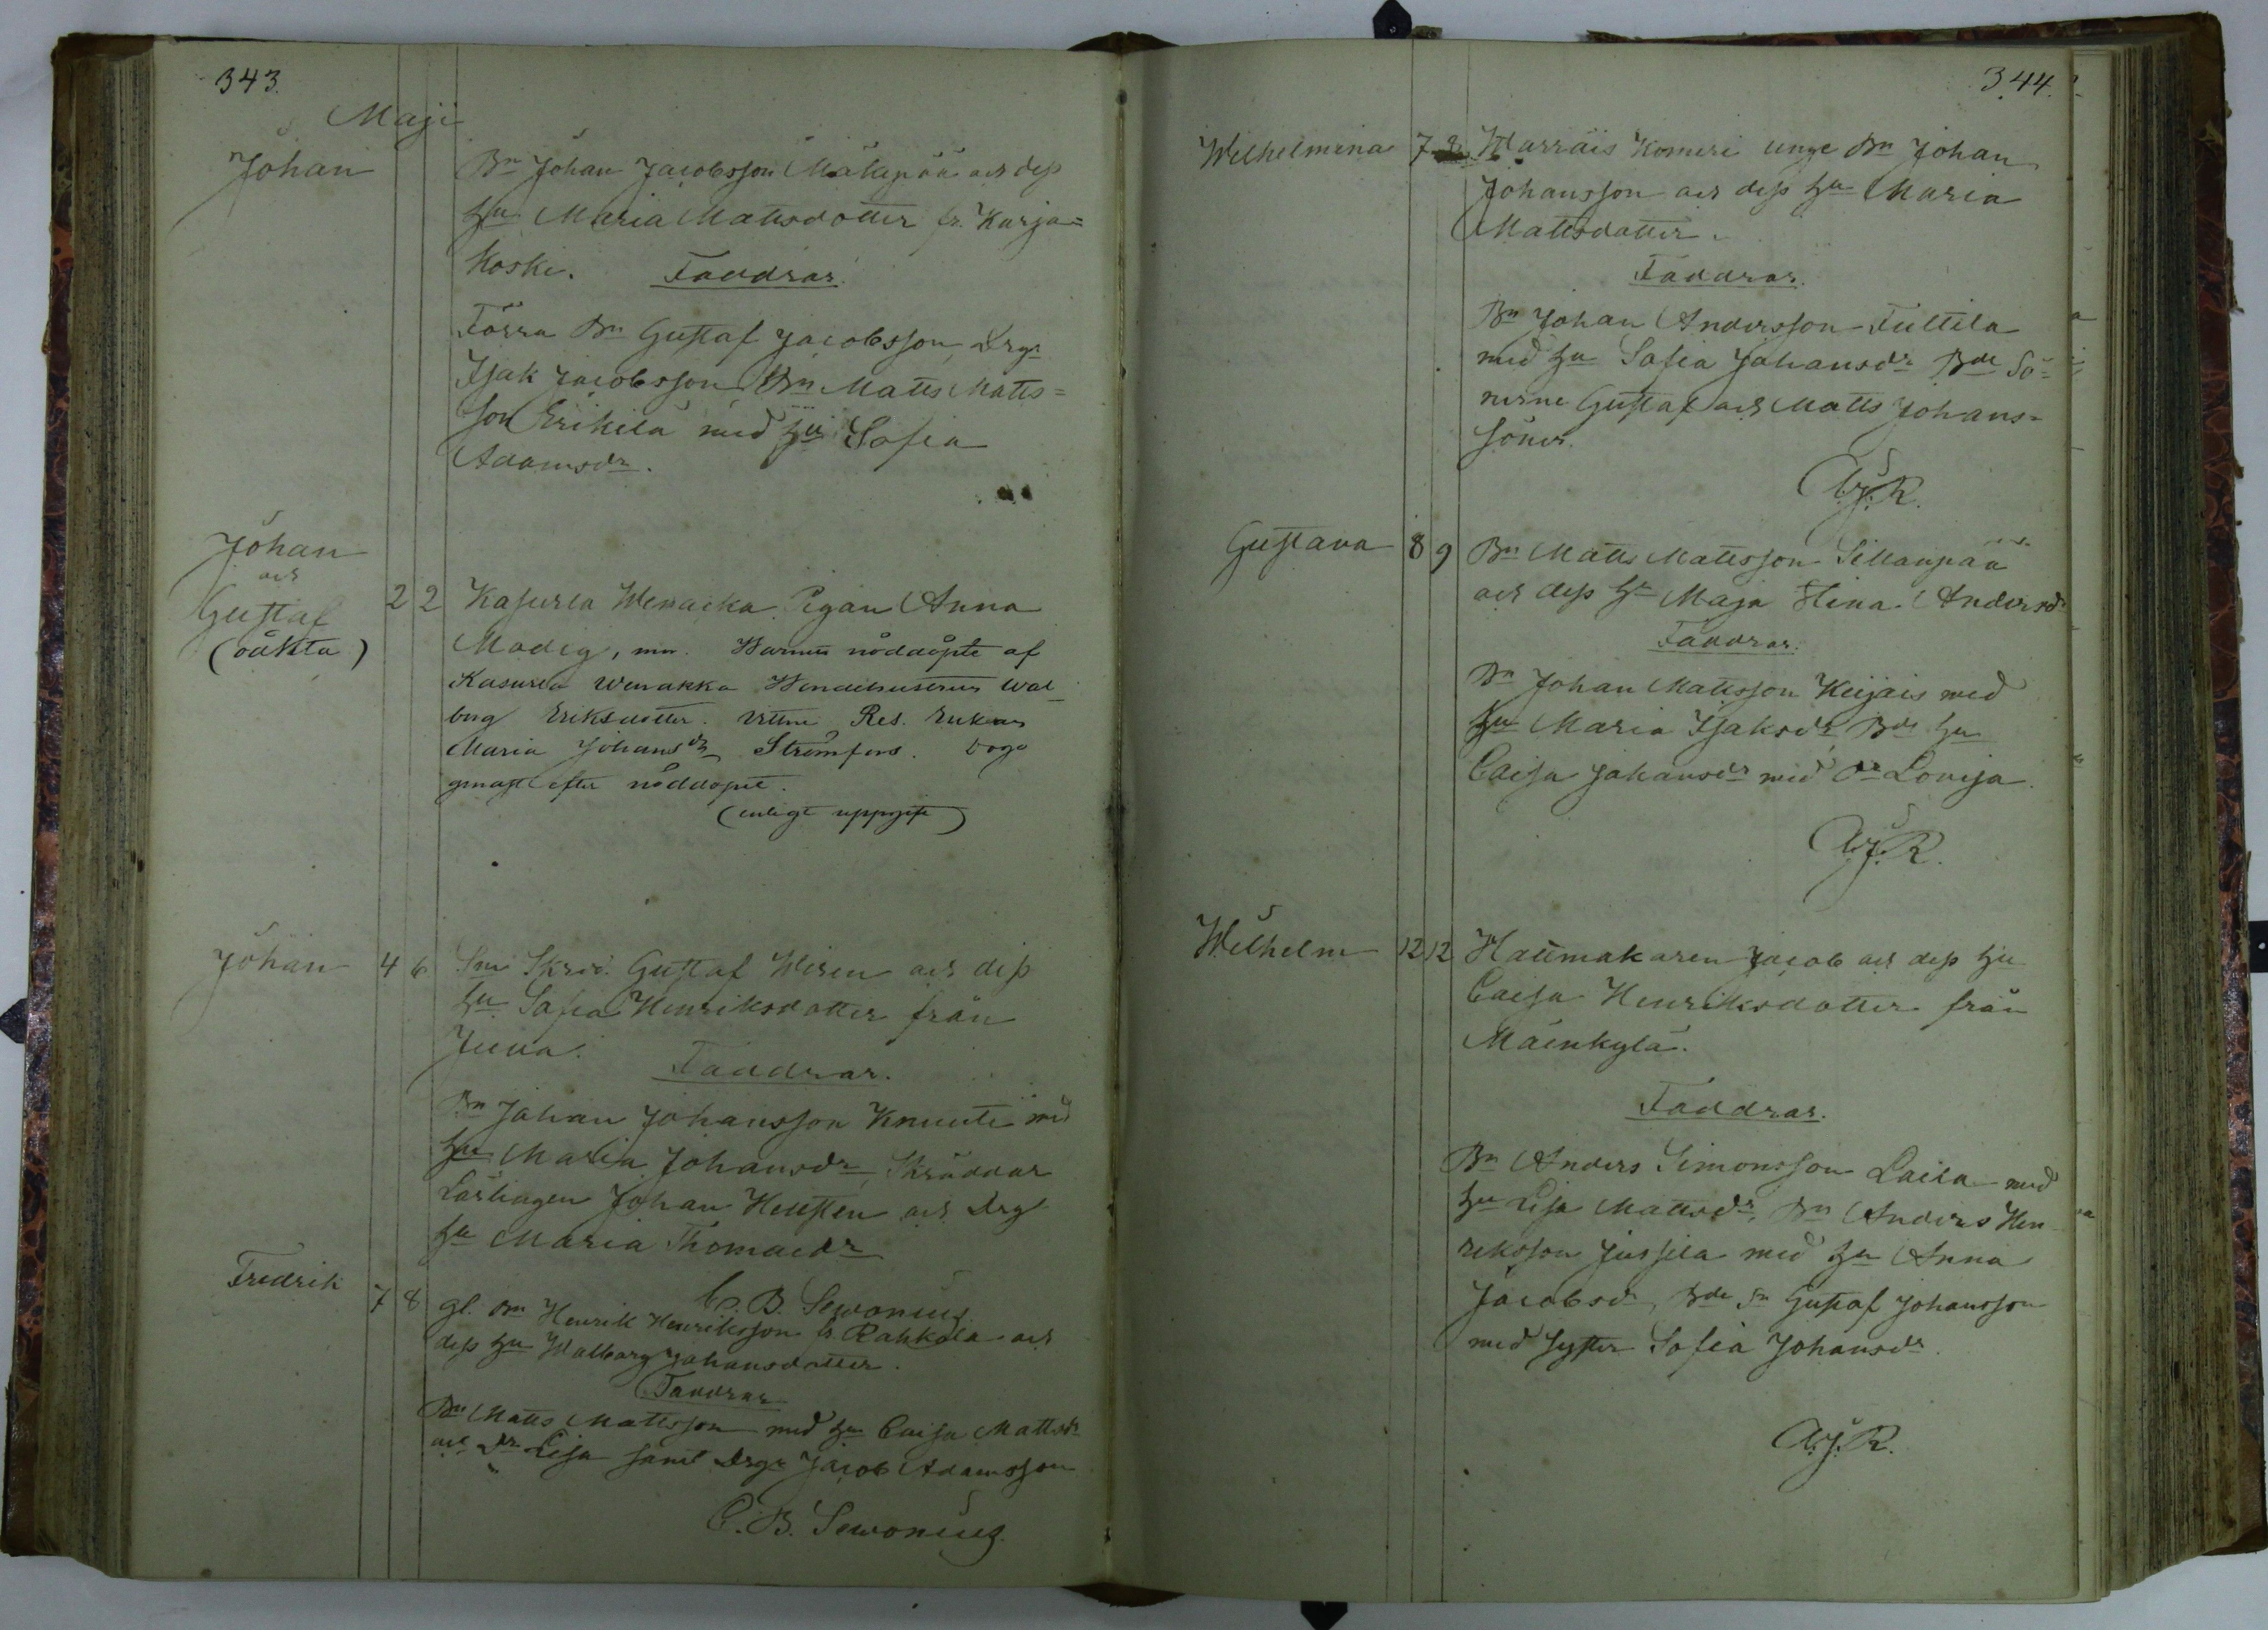 343.
Maji
Johan
Bn Johan Jacobsson Mätäpää och dess
hu Maria Mattsdotter fr. Karja=
koski. Faddrar.
Förra Bn Gustaf Jacobsson, Drgn
Isak Jacobsson, Bn Matts Matts=
son Erikilä med hu Sofia
Adamsdr.
Johan
och
Gustaf
(oäkta)
2 2 Kasurla Wenakka Pigan Anna
Modig, Barnen nöddöpte af
Kasurla Wenakka Wal-
borg Eriksdotter. Vittne Res. Enkan
Maria Johansdr Strömfors.
genast efter nöddopet.
(enligt uppgift)
Johan 4 6 Sn Skräd. Gustaf Wiren och dess
hu Sofia Henriksdotter från
Juva.
Faddrar.
Bn Johan Johansson Knuuti med
hu Maria Johansdr, Skräddar
Lärlingen Johan Hellsten och Drg
hu Maria Thomaedr
C. B. Sewonius
Fredrik 7 8 gl. Bn Henrik Henriksson fr Rahkola och
dess hu Walborg Johansdotter.
Faddrar
Bn Matts Mattsson med hu Caisa Mattsdr
och Dr Lisa samt Drgn Jacob Adamsson
C. B. Sewonius.
344.
Wilhelmina 7 Warräis Komeri unge Bn Johan
Johansson och dess hu Maria
Mattsdotter.
Faddrar.
Bn Johan Andersson Tultila
med hu Sofia Johansdr Bde Sö-
nerne Gustaf och Matts Johans=
söner.
A.J.R.
Gustava 8 9 Bn Matts Mattsson Sillanpää
och dess hu Maja Stina Andersdr
Faddrar.
Bn Johan Mattsson Keijais med
hu Maria Isaksdr, Bde hu
Caisa Johansdr med Dr Lovisa.
A.J.R.
Wilhelm 12 12 Hattmakaren Jacob och dess hu
Caisa Henriksdotter från
Mäenkylä.
Faddrar.
Bn Anders Simonsson Laila med
hu Lisa Mattsdr, Bn Anders Hen
riksson Jussila med hu Anna
Jacobsdr, Bde Sn Gustaf Johansson
med syster Sofia Johansdr.
A.J.R.